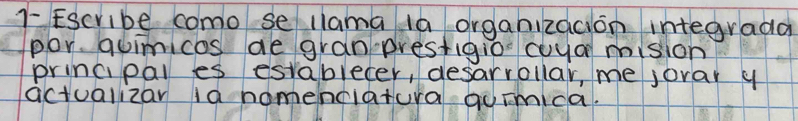 1- Escribe como se llama la organización integrada
por químicos de gran prestigio cuya mision
principal es establecer, desarrollar, mejorar y
actualizar la nomenclatura química.